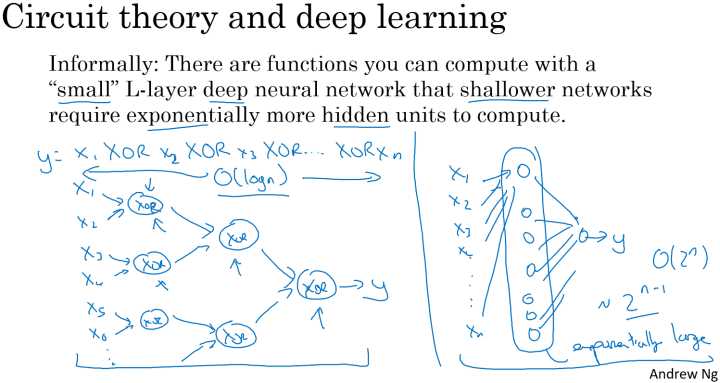 Circuit theory and deep learning
Informally: There are functions you can compute with a
“small” L-layer deep neural network that shallower networks
require exponentially more hidden units to compute.
y= x₁ XOR x₂ XOR x₃ XOR.... XOR xₙ
O(log n)
x₁
x₂
XOR
x₃
x₄
XOR
x₅
x₆
XOR
XOR
XOR
XOR
y
x₁
x₂
x₃
x₄
xₙ
y
O(2ⁿ)
~ 2ⁿ⁻¹
exponentially large
Andrew Ng